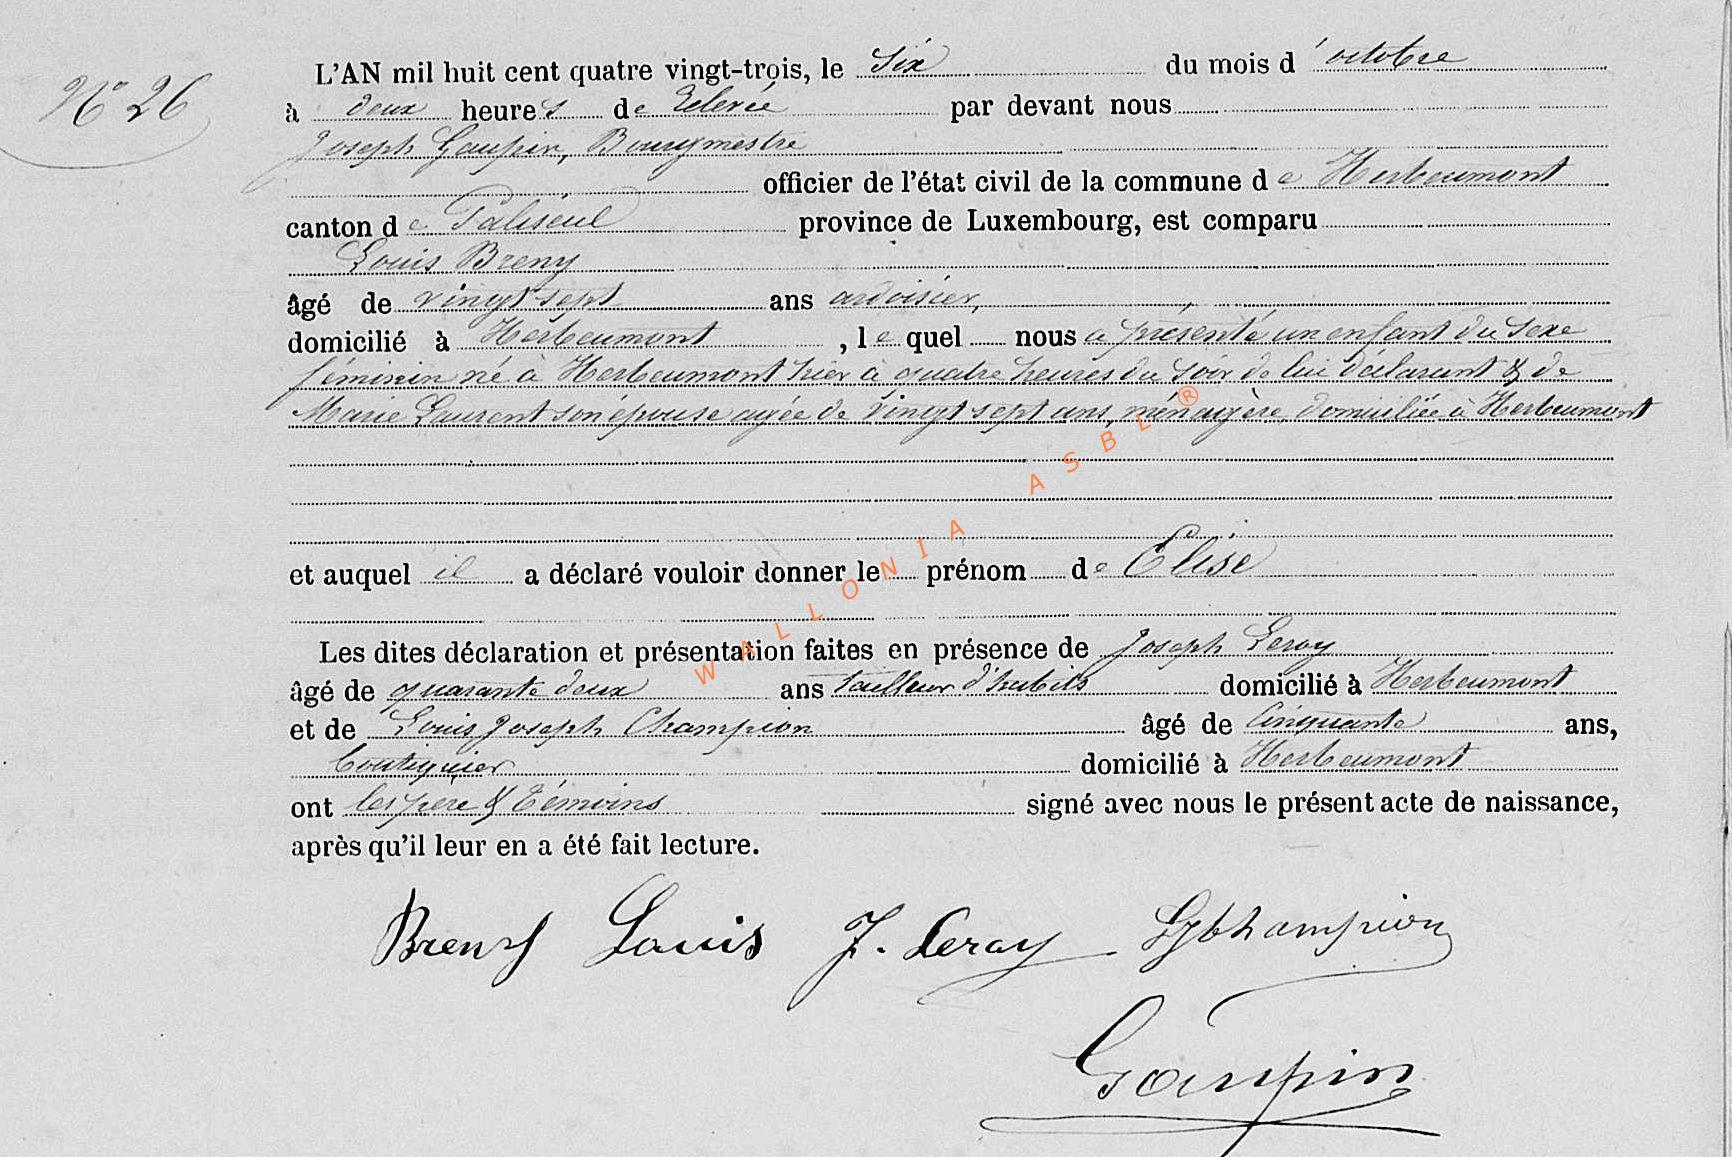 N° 26
L'AN mil huit cent quatre vingt-trois, le six du mois d'octobre
à deux heures de relevée par devant nous
Joseph Gaupin, Bourgmestre
officier de l'état civil de la commune de Herbeumont
canton de Paliseul province de Luxembourg, est comparu
Louis Breny
âgé de vingt sept ans ardoisier,
domicilié à Herbeumont, lequel nous a présenté un enfant du sexe
féminin né à Herbeumont hier à quatre heures du soir de lui déclarant & de
Marie Laurent son épouse agée de vingt sept ans, ménagère, domiciliée à Herbeumont
et auquel il a déclaré vouloir donner le prénom de Elise
Les dites déclaration et présentation faites en présence de Joseph Leroy
âgé de quarante deux ans tailleur d'habits domicilié à Herbeumont
et de Louis Joseph Champion âgé de Cinquante ans,
boutiquier domicilié à Herbeumont
ont les père & témoins signé avec nous le présent acte de naissance,
après qu'il leur en a été fait lecture.
Breny Louis J. Leroy LJChampion
Gaupin
WALLONIA ASBL ®